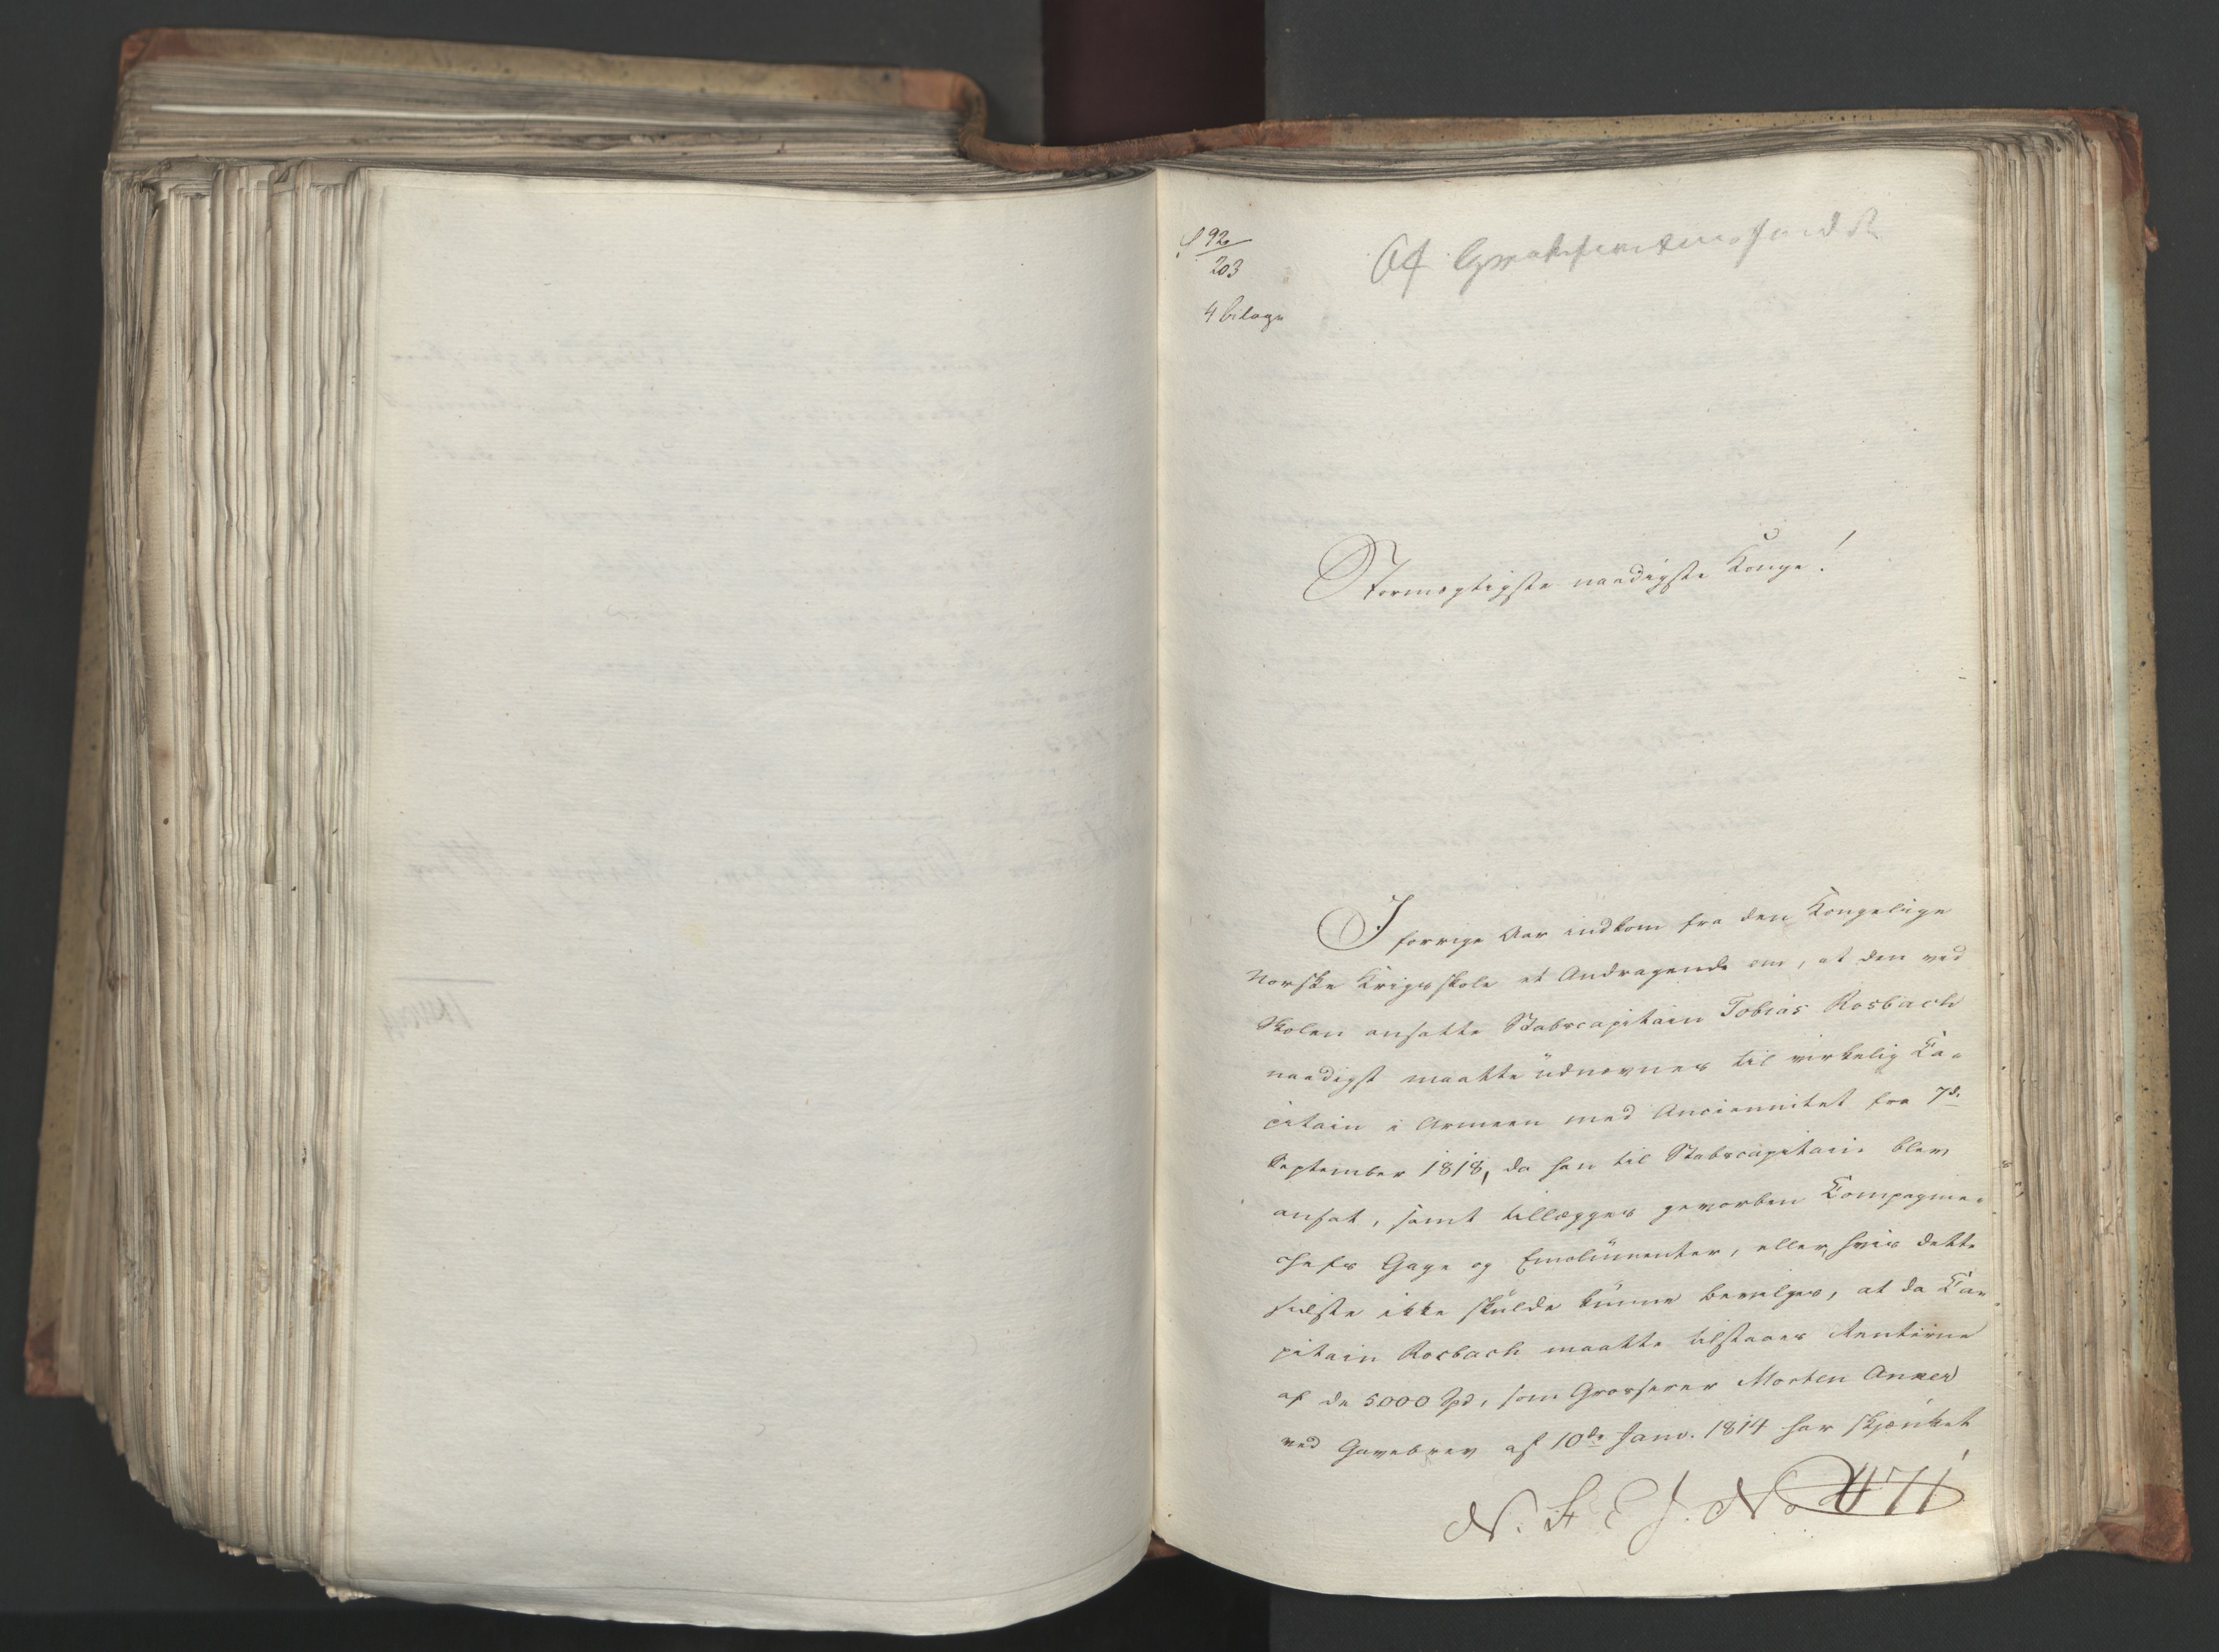 f 92
203
4 bilage
Af
Stormægtigste naadigste Konge!
I forrige Aar indkom fra den Kongelige
Norske Krigsskole et Andragende om, at den ved
Skolen ansatte Stabscapitain Tobias Rosbach
naadigst maatte udnevnes til virkelig Ca-
pitain i Armeen med Anciennitet fra 7de
September 1818, da han til Stabscapitain blev
ansat, samt tillægges gevorben Compagnie-
chefs Gage og Emolumenter, eller, hvis dette
sidste ikke skulde kunne bevilges, at da Ca-
pitain Rosbach maatte tilstaaes Renterne
af de 5000 Spd, som Grosserer Morten Anker
ved Gavebrev af 10de Janv. 1814 har skjænket
N. St. E. J. No 471